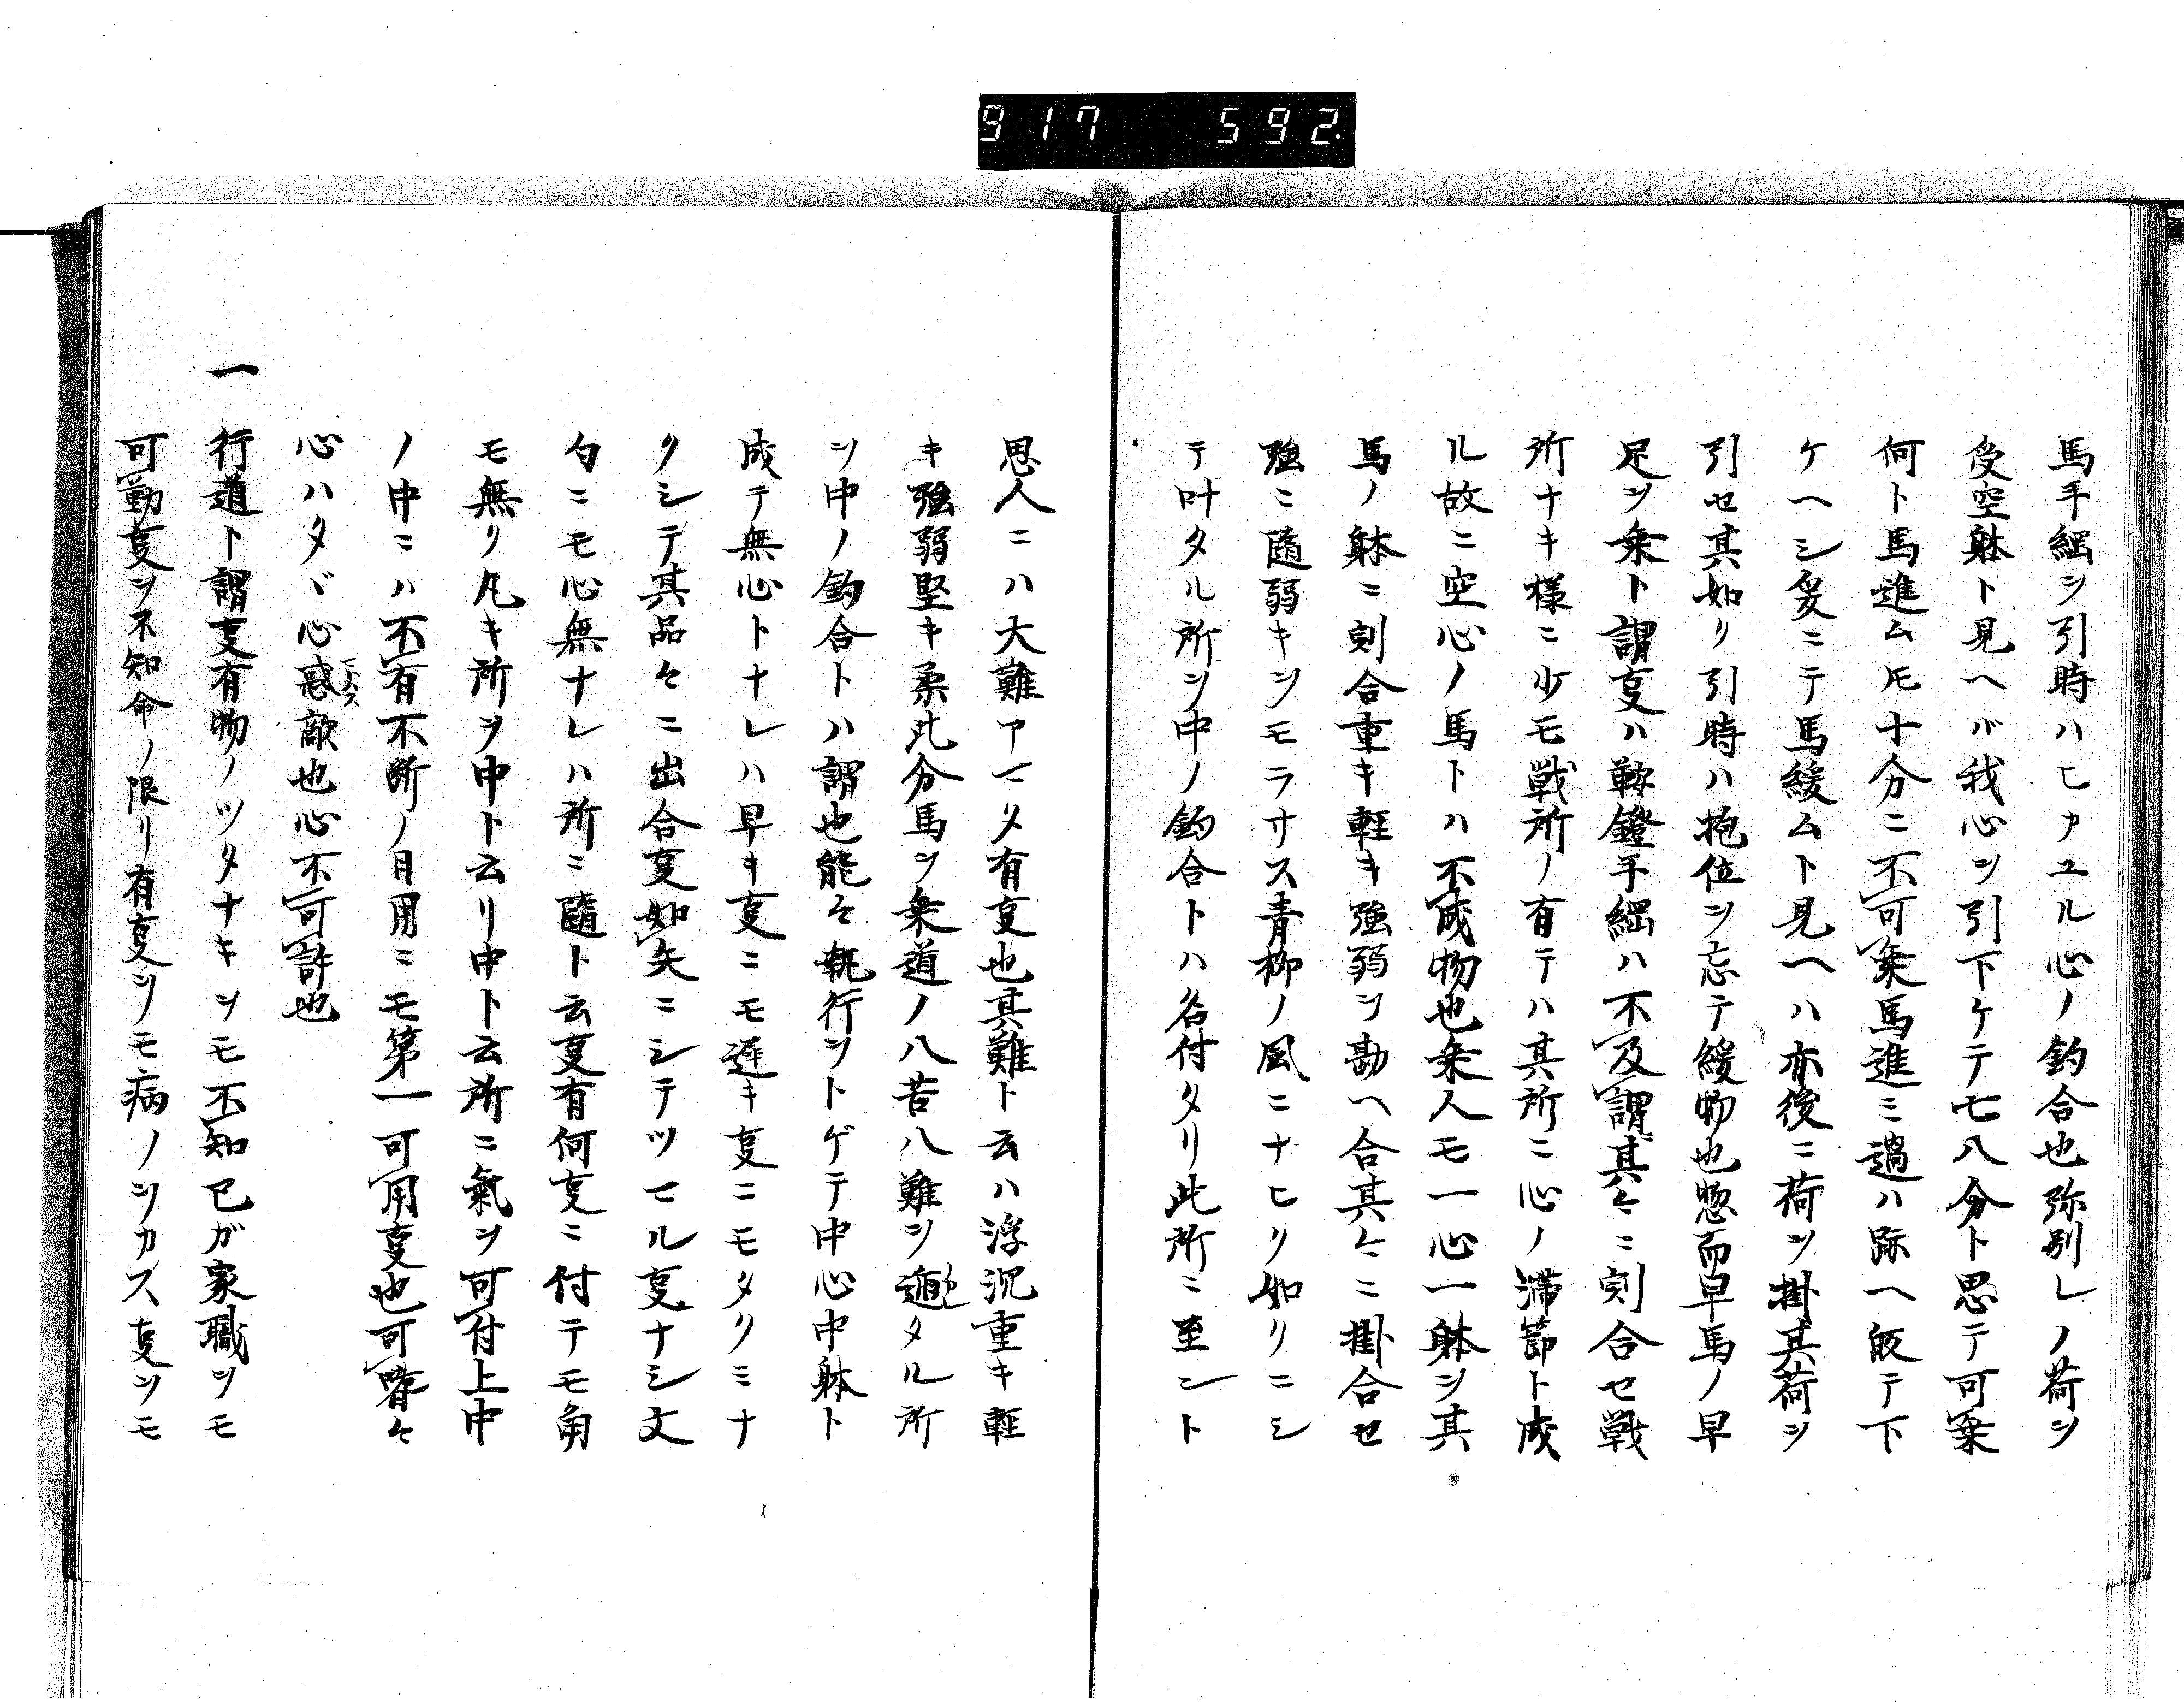 917 592.
馬手綱ヲ引時ハヒカユル心ノ釣合也弥別レノ荷ヲ
受空躰ト見ヘバ我心ヲ引下ケテ七八分ト思テ可乗
何ト馬進ムトモ十分ニ不可乗馬進ミ過ハ跡ヘ皈テ下
ケヘシ爰ニテ馬緩ムト見ヘハ亦後ニ荷ヲ掛其荷ヲ
引セ其如リ引時ハ抱位ヲ忘テ緩物也惣而早馬ノ早
足ヲ乗ト謂叓ハ鞍鐙手綱ハ不及謂其々ニ刻合セ戦
所ナキ様ニ少モ戦所ノ有テハ其所ニ心ノ滞節ト成
ル故ニ空心ノ馬トハ不成物也乗人モ一心一躰ヲ其
馬ノ躰ニ刻合重キ軽キ強弱ヲ勘ヘ合其々ニ掛合セ
強ニ随弱キヲモラサス青柳ノ風ニナヒリ如リニシ
テ叶タル所ヲ中ノ釣合トハ名付タリ此所ニ至ント
思人ニハ大難アマタ有叓也其難ト云ハ浮沉重キ軽
キ強弱堅キ柔此分馬ヲ乗道ノ八苦八難ヲ遁タル所
ヲ中ノ釣合トハ謂也能々執行ヲトゲテ中心中躰ト
成テ無心トナレハ早キ叓ニモ遅キ叓ニモタリミナ
クシテ其品々ニ出合叓如矢ニシテツマル叓ナシ文
句ニモ心無ナレハ所ニ随ト云叓有何叓ニ付テモ角
モ無リ凡キ所ヲ中ト云リ中ト云所ニ氣ヲ可付上中
ノ中ニハ不有不断ノ日用ニモ第一可用叓也可嗜々
心ハタヾ心惑敵也心不可許也
一 行道ト謂叓有物ノツタナキヲモ不知己ガ家職ヲモ
可勤叓ヲ不知命ノ限リ有叓ヲモ病ノヲカス叓ヲモ